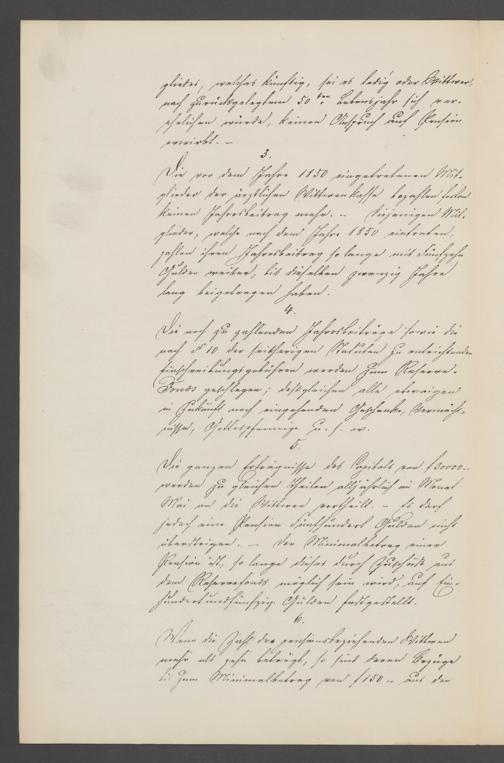 gliedes, welches künftig, sei es ledig oder Wittwer,
nach zurückgelegtem 50ten Lebensjahr sich ver-
ehelichen würde, keinen Anspruch auf Pension
erwirbt. —
3.
Die vor dem Jahre 1850 eingetretenen Mit-
glieder der ärztlichen Wittwenkasse bezahlen
keinen Jahresbeitrag mehr. — Diejenigen Mit-
glieder, welche nach dem Jahre 1850 eintraten,
zahlen ihren Jahresbeitrag so lange mit Fünfzehn
Gulden weiter, bis dieselben zwanzig Jahre
lang beigetragen haben.
4.
Die noch zu zahlenden Jahresbeiträge sowie die
nach § 10 der seitherigen Statuten zu entrichtenden
Einschreibungsgebühren werden zum Reserve-
Fonds geschlagen; desgleichen alle etwaigen
in Zukunft noch eingehenden Geschenke, Vermächt-
nisse, Gottespfennige u. s. w.
5.
Die ganzen Erträgnisse des Capitals von f 50000.-
werden zu gleichen Theilen alljährlich im Monat
Mai an die Wittwen vertheilt. — Es darf
jedoch eine Pension Fünfhundert Gulden nicht
übersteigen. — Der Minimalbetrag einer
Pension ist, so lange dieses durch Zuschuß aus
dem Reservefonds möglich sein wird, auf Ein-
hundertundfünfzig Gulden festgestellt.
6.
Wenn die Zahl der pensionsbeziehenden Wittwen
mehr als zehn beträgt, so sind deren Bezüge
bis zum Minimalbetrag von f 150.- aus den